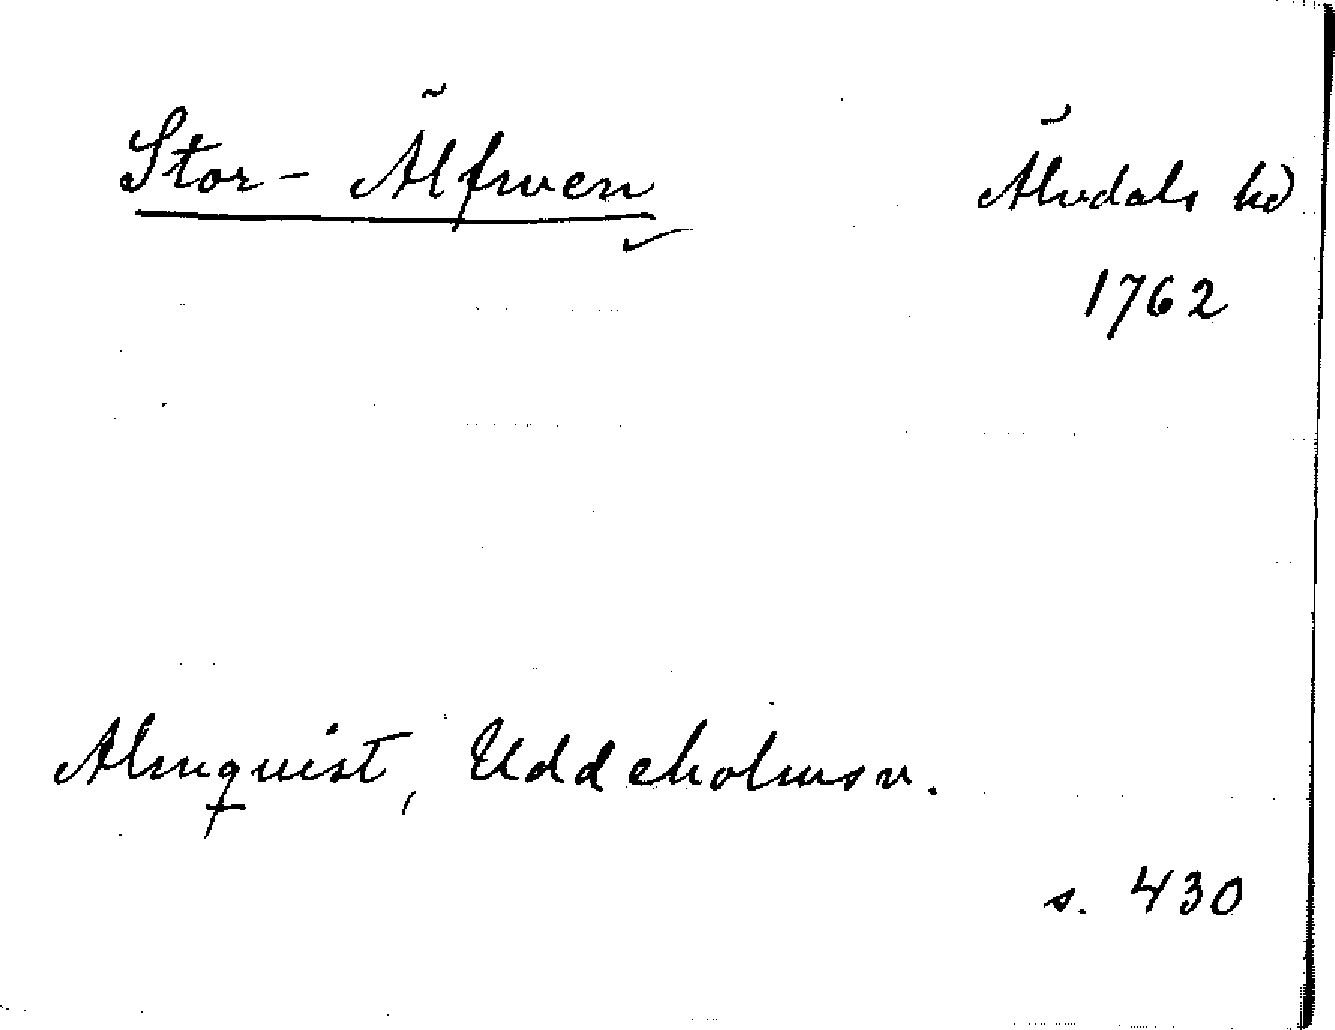 Stor-Älfwen
Älvdals hd
1762
Almquist, Uddeholmsv.
s. 430